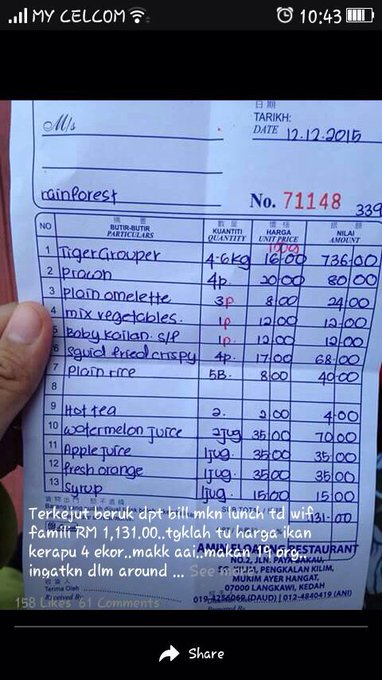 MY CELCOM 10:43
日期
TARIKH:
DATE 12.12.2015
M/s
rainforest
No. 71148
339
NO BUTIR-BUTIR PARTICULARS KUANTITI QUANTITY HARGA UNIT PRICE NILAI AMOUNT
100g
1 Tiger Grouper 4.6kg 16.00 736.00
2 prawn 4p. 20.00 80.00
3 Plain omelette 3p 8.00 24.00
4 mix vegetables. 1p 12.00 12.00
5 Baby Kailan. s/p 1p. 12.00 12.00
6 Squid fried crispy 4p. 17.00 68.00
7 Plain rice 5B. 8.00 40.00
8
9 Hot tea 2. 2.00 4.00
10 watermelon juice 2jug 35.00 70.00
11 Apple juice 1jug. 35.00 35.00
12 fresh orange 1jug. 35.00 35.00
13 Syrup 1jug. 15.00 15.00
Terkejut beruk dpt bill mkn lunch td wif
famili RM 1,131.00..tgklah tu harga ikan
kerapu 4 ekor..makk aai..makan 19 org..
ingatkn dlm around ... See more
RESTAURANT
NO.2, JLN. PAYA
PENGKALAN KILIM,
MUKIM AYER HANGAT,
07000 LANGKAWI, KEDAH
(DAUD) | 012-4840419 (ANI)
Terima Oleh
Received By
158 Likes 61 Comments
Share